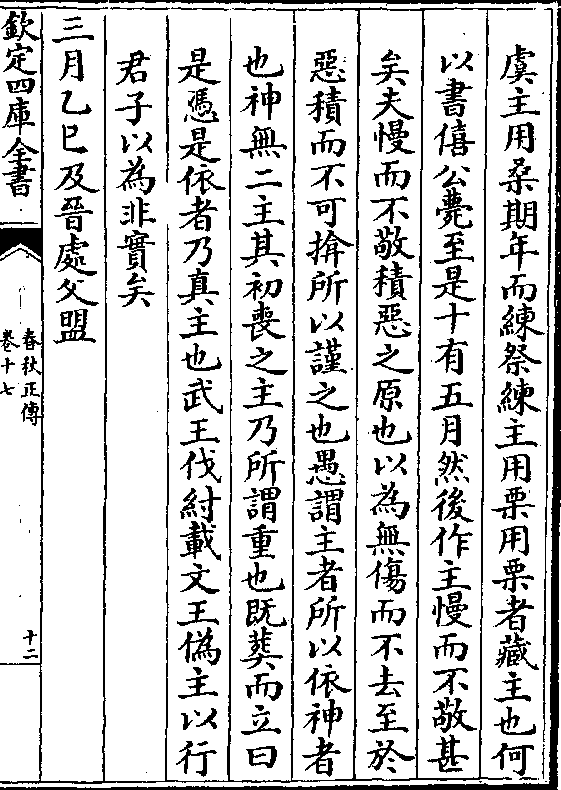 虞主用桑期年而練祭練主用栗用栗者藏主也何
以書僖公薨至是十有五月然後作主慢而不敬甚
矣夫慢而不敬積惡之原也以為無傷而不去至於
惡積而不可揜所以謹之也愚謂主者所以依神者
也神無二主其初喪之主乃所謂重也既葬而立曰
是憑是依者乃真主也武王伐紂載文王僞主以行
君子以為非實矣
三月乙巳及晉處父盟
欽定四庫全書
春秋正傳
卷十七
十二